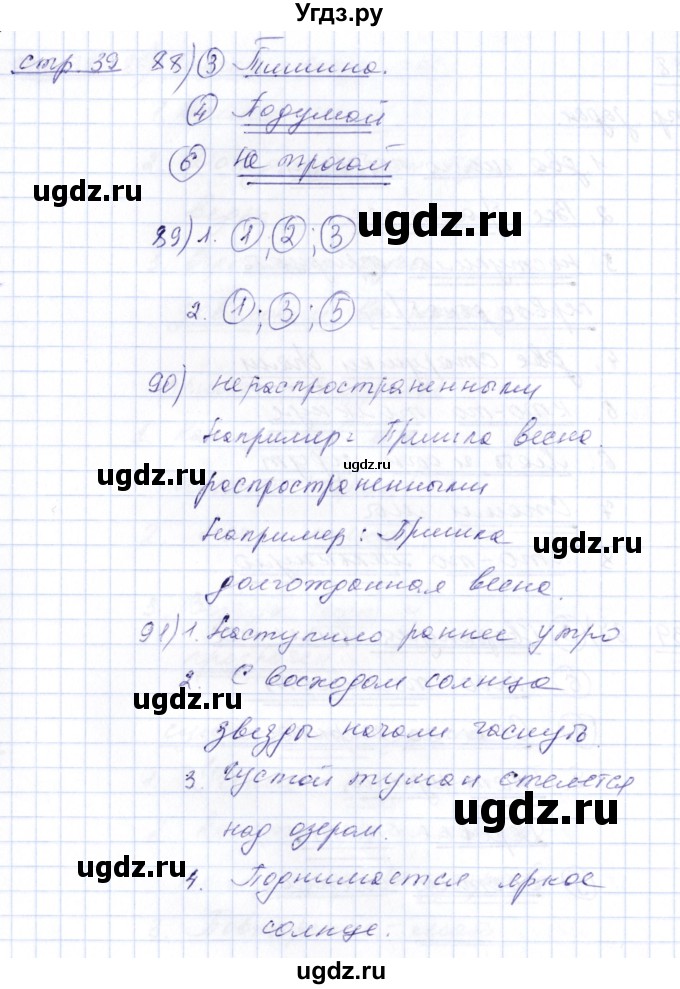 Угдз.ру
стр. 39 88) ③ Тишина.
④ Подумай
⑥ Не трогай
ugdz.ru
ugdz.ru
89) 1. ①, ②; ③
2. ①; ③; ⑤
ugdz.ru
ugdz.ru
90) нераспространенными
Например: Пришла весна.
ugdz.ru
ugdz.ru
распространенными
Например: Пришла
ugdz.ru
долгожданная весна.
91) 1. Наступило раннее утро
2. С восходом солнца
ugdz.ru
звезды начали гаснуть.
3. Густой туман стелется
ugdz.ru
над озером.
ugdz.ru
4. Поднимается яркое
солнце.
ugdz.ru
ugdz.ru